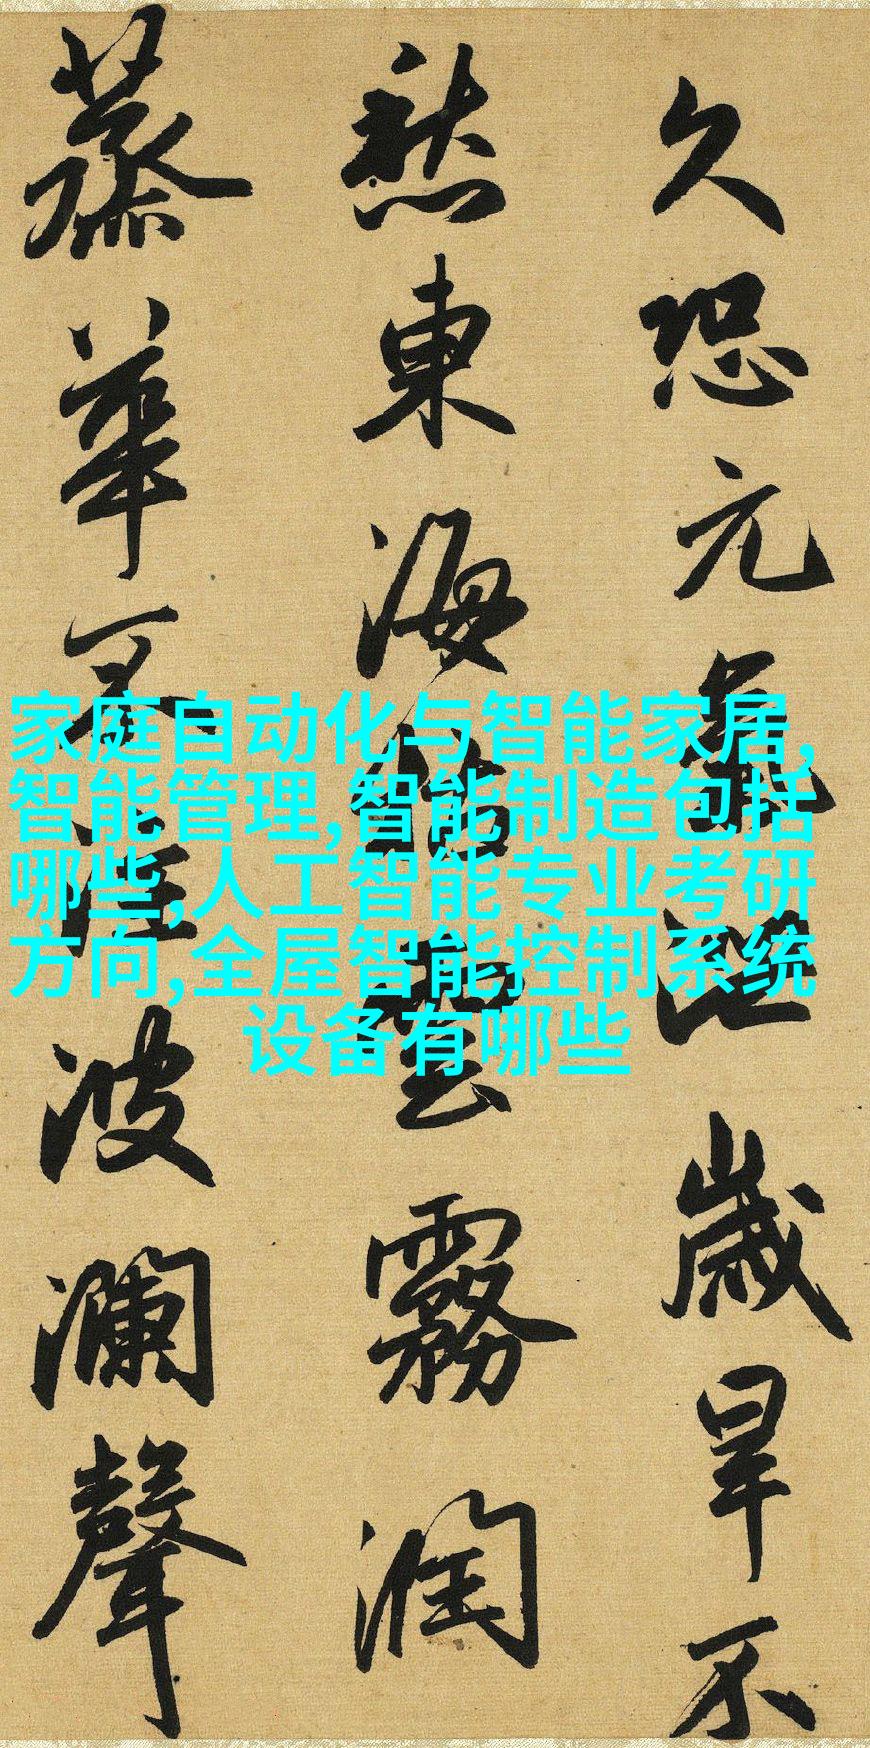 久恐元氣歲旱不
愁東海雲霧潤
蒸華波瀾聲
家庭自动化与智能家居,
智能管理,智能制造包括
哪些,人工智能专业考研
方向,全屋智能控制系统
设备有哪些